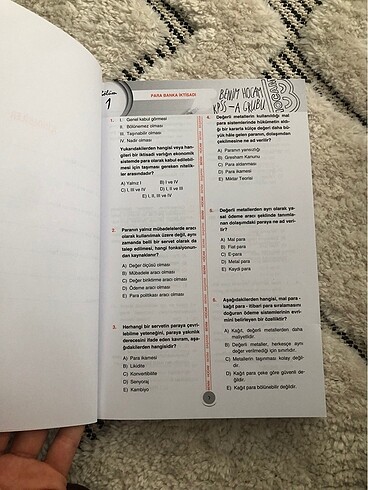 Bölüm
1
PARA BANKA İKTİSADI
BENİM HOCAM
KPSS-A GRUBU
1. I. Genel kabul görmesi
II. Bölünemez olması
III. Taşınabilir olması
IV. Nadir olması
Yukarıdakilerden hangisi veya han-
gileri bir iktisadi varlığın ekonomik
sistemde para olarak kabul edilebil-
mesi için taşıması gereken nitelik-
ler arasındadır?
A) Yalnız I B) I ve IV
C) I, III ve IV D) I, II ve III
E) I, II, III ve IV
2. Paranın yalnız mübadelelerde aracı
olarak kullanılmak üzere değil, aynı
zamanda belli bir servet olarak da
talep edilmesi, hangi fonksiyonun-
dan kaynaklanır?
A) Değer ölçüsü olması
B) Mübadele aracı olması
C) Değer biriktirme aracı olması
D) Ödeme aracı olması
E) Para politikası aracı olması
3. Herhangi bir servetin paraya çevri-
lebilme yeteneğini, paraya yakınlık
derecesini ifade eden kavram, aşa-
ğıdakilerden hangisidir?
A) Para ikamesi
B) Likidite
C) Konvertibilite
D) Senyoraj
E) Kambiyo
4. Değerli metallerin kullanıldığı mal
para sistemlerinde hükümetin aldı-
ğı bir kararla külçe değeri daha bü-
yük hâle gelen paranın, dolaşımdan
çekilmesine ne ad verilir?
A) Paranın yansızlığı
B) Gresham Kanunu
C) Para aldanması
D) Para ikamesi
E) Miktar Teorisi
5. Değerli metallerden ayrı olarak ya-
sal ödeme aracı şeklinde tanımla-
nan dolaşımdaki paraya ne ad veri-
lir?
A) Mal para
B) Fiat para
C) E-para
D) Metal para
E) Kaydi para
6. Aşağıdakilerden hangisi, mal para -
kağıt para - itibari para sıralamasını
doğuran ödeme sistemlerinin evri-
mini belirleyen bir özelliktir?
A) Kağıt, değerli metallerden daha
maliyetlidir.
B) Değerli metaller, herkesçe aynı
değer verilmediği için sınırlıdır.
C) Metallerin taşınması kolay değil-
dir.
D) Kağıt para çeke göre güvenli de-
ğildir.
E) Kağıt para bölünebilir değildir.